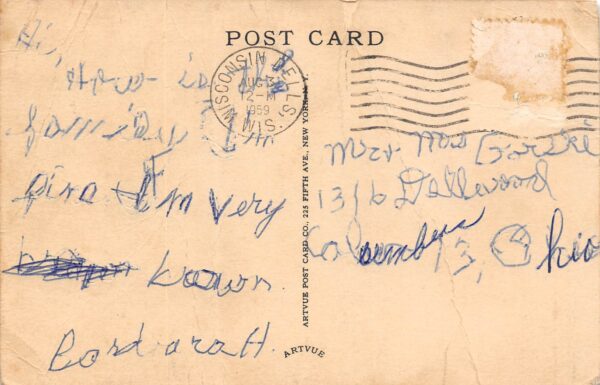 POST CARD
Hi,
How is the
family I'm
fine I'm very
brown.
Barbara H.
WISCONSIN DELLS, WIS.
AUG
12-M
1959
Mr & Mrs Gorski
1316 Dellwood
Columbus 13, Ohio
ARTVUE POST CARD CO., 225 FIFTH AVE., NEW YORK, N. Y.
ARTVUE